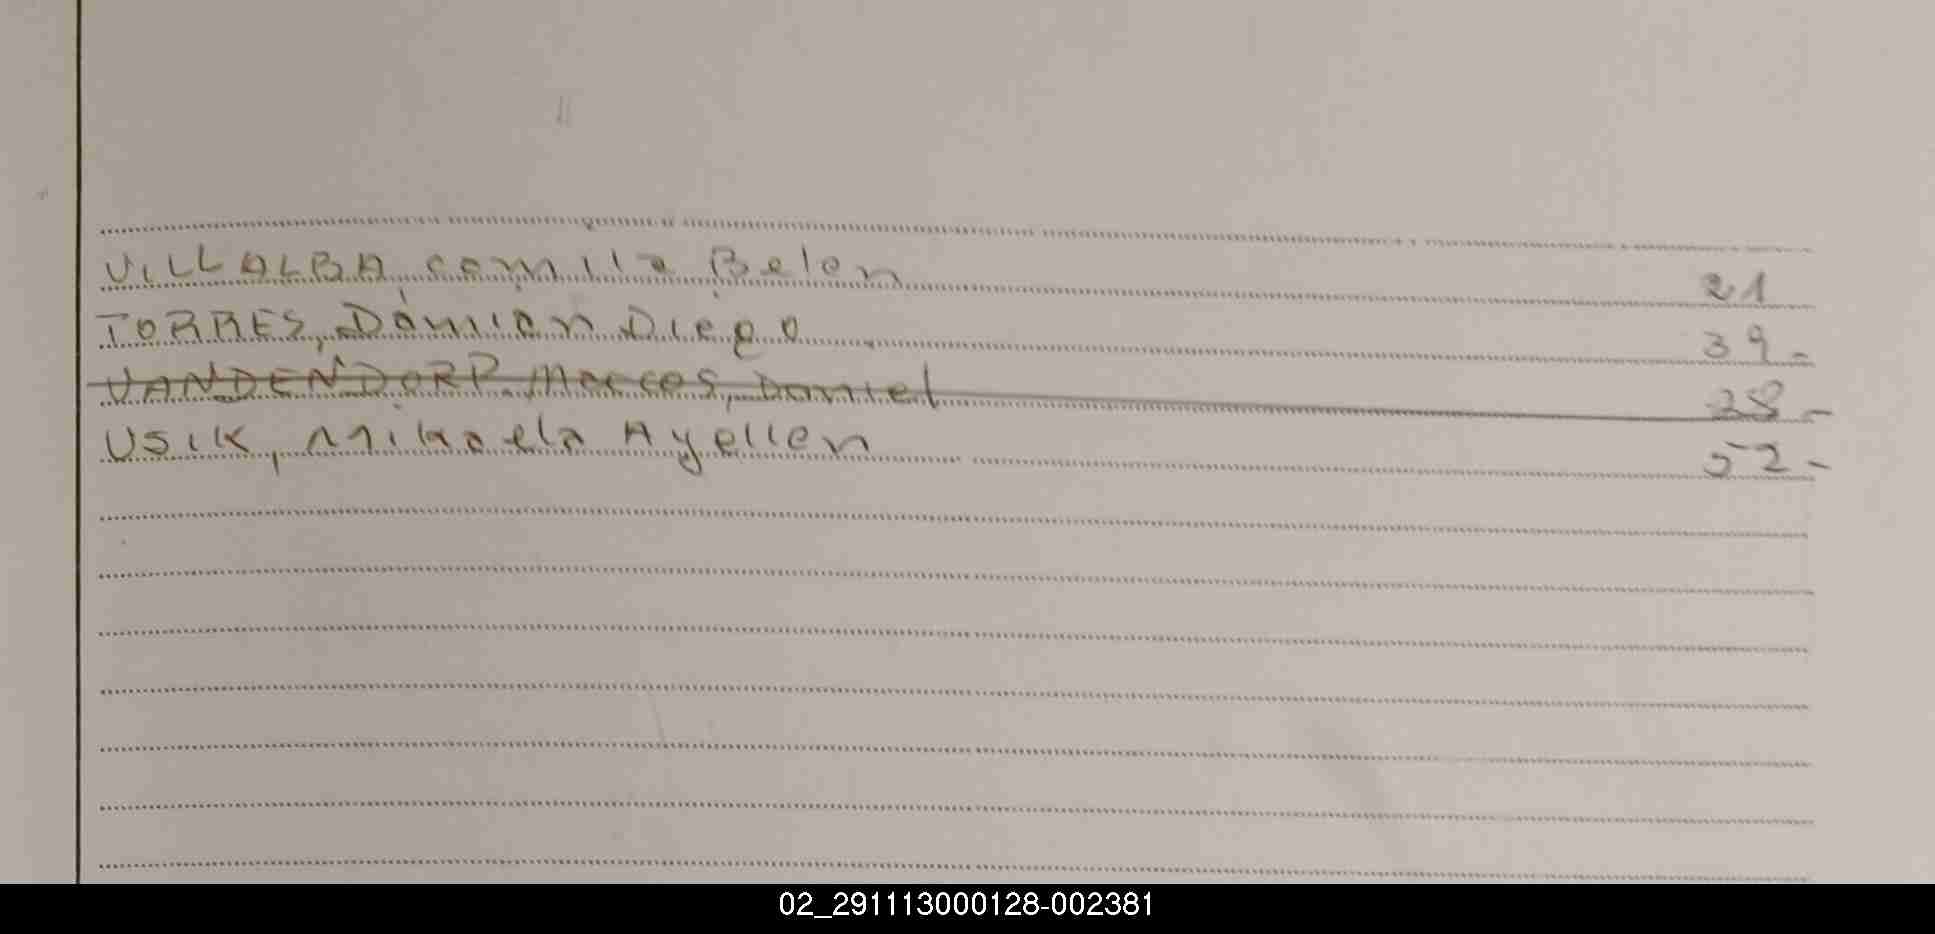 VILLALBA camila Belen 21
TORRES, Damián Diego 39-
VANDENDORP. Marcos, Daniel 38-
USIK, Mikaela Ayellen 52-
02_291113000128-002381